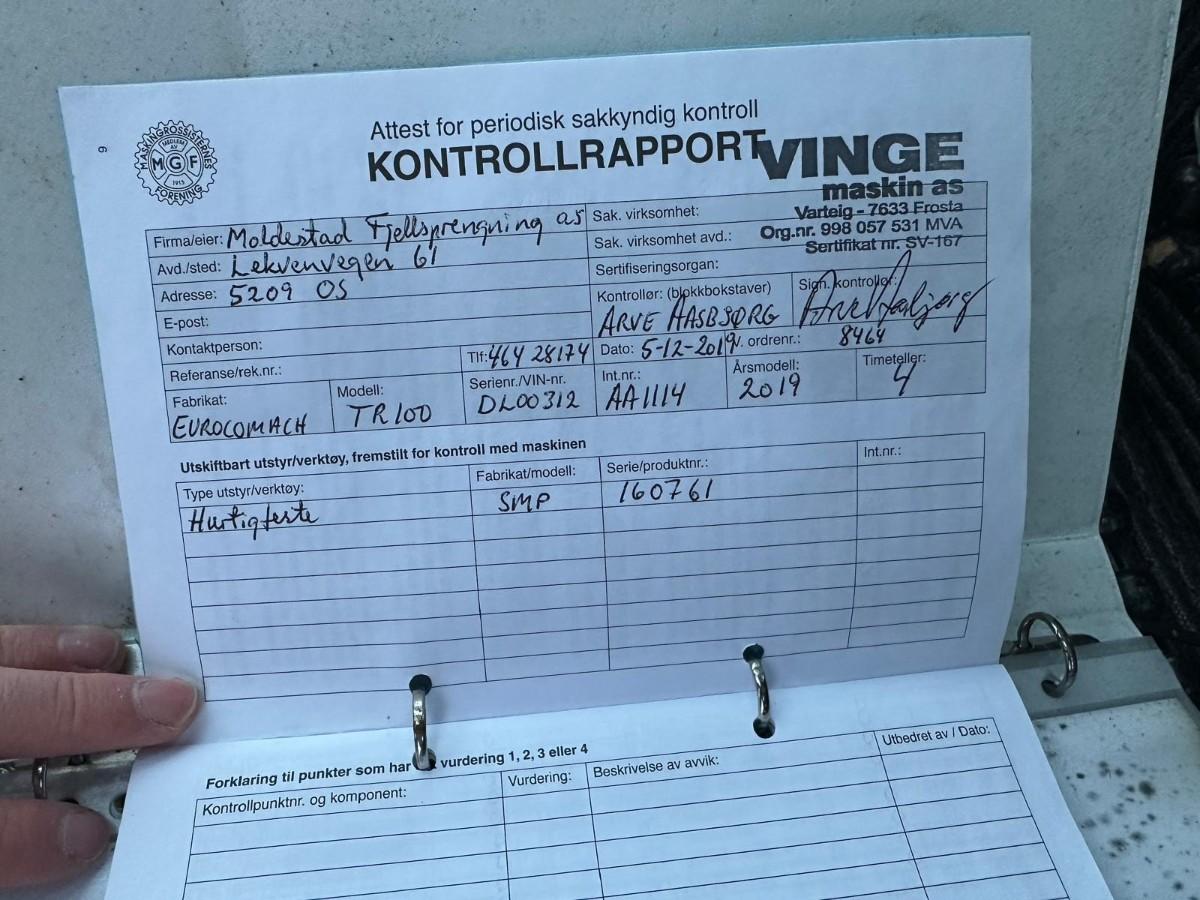 6
MASKINGROSSISTERNES FORENING
MEDLEM AV
MGF
1913
Attest for periodisk sakkyndig kontroll
KONTROLLRAPPORT
VINGE
maskin as
Varteig - 7633 Frosta
Org.nr. 998 057 531 MVA
Sertifikat nr. SV-167
Firma/eier: Moldestad Fjellsprengning as
Avd./sted: Lekvenvegen 61
Adresse: 5209 OS
E-post:
Kontaktperson:
Referanse/rek.nr.:
Tlf: 464 28174
Sak. virksomhet:
Sak. virksomhet avd.:
Sertifiseringsorgan:
Kontrollør: (blokkbokstaver) ARVE AASBJØRG
Sign. kontrollør:
Dato: 5-12-2019
V. ordrenr.: 8464
Fabrikat: EUROCOMACH
Modell: TR100
Serienr./VIN-nr. DL00312
Int.nr.: AA1114
Årsmodell: 2019
Timeteller: 4
Utskiftbart utstyr/verktøy, fremstilt for kontroll med maskinen
Type utstyr/verktøy: Fabrikat/modell: Serie/produktnr.: Int.nr.:
Hurtigfeste SMP 160761
Forklaring til punkter som har vurdering 1, 2, 3 eller 4
Kontrollpunktnr. og komponent: Vurdering: Beskrivelse av avvik: Utbedret av / Dato: